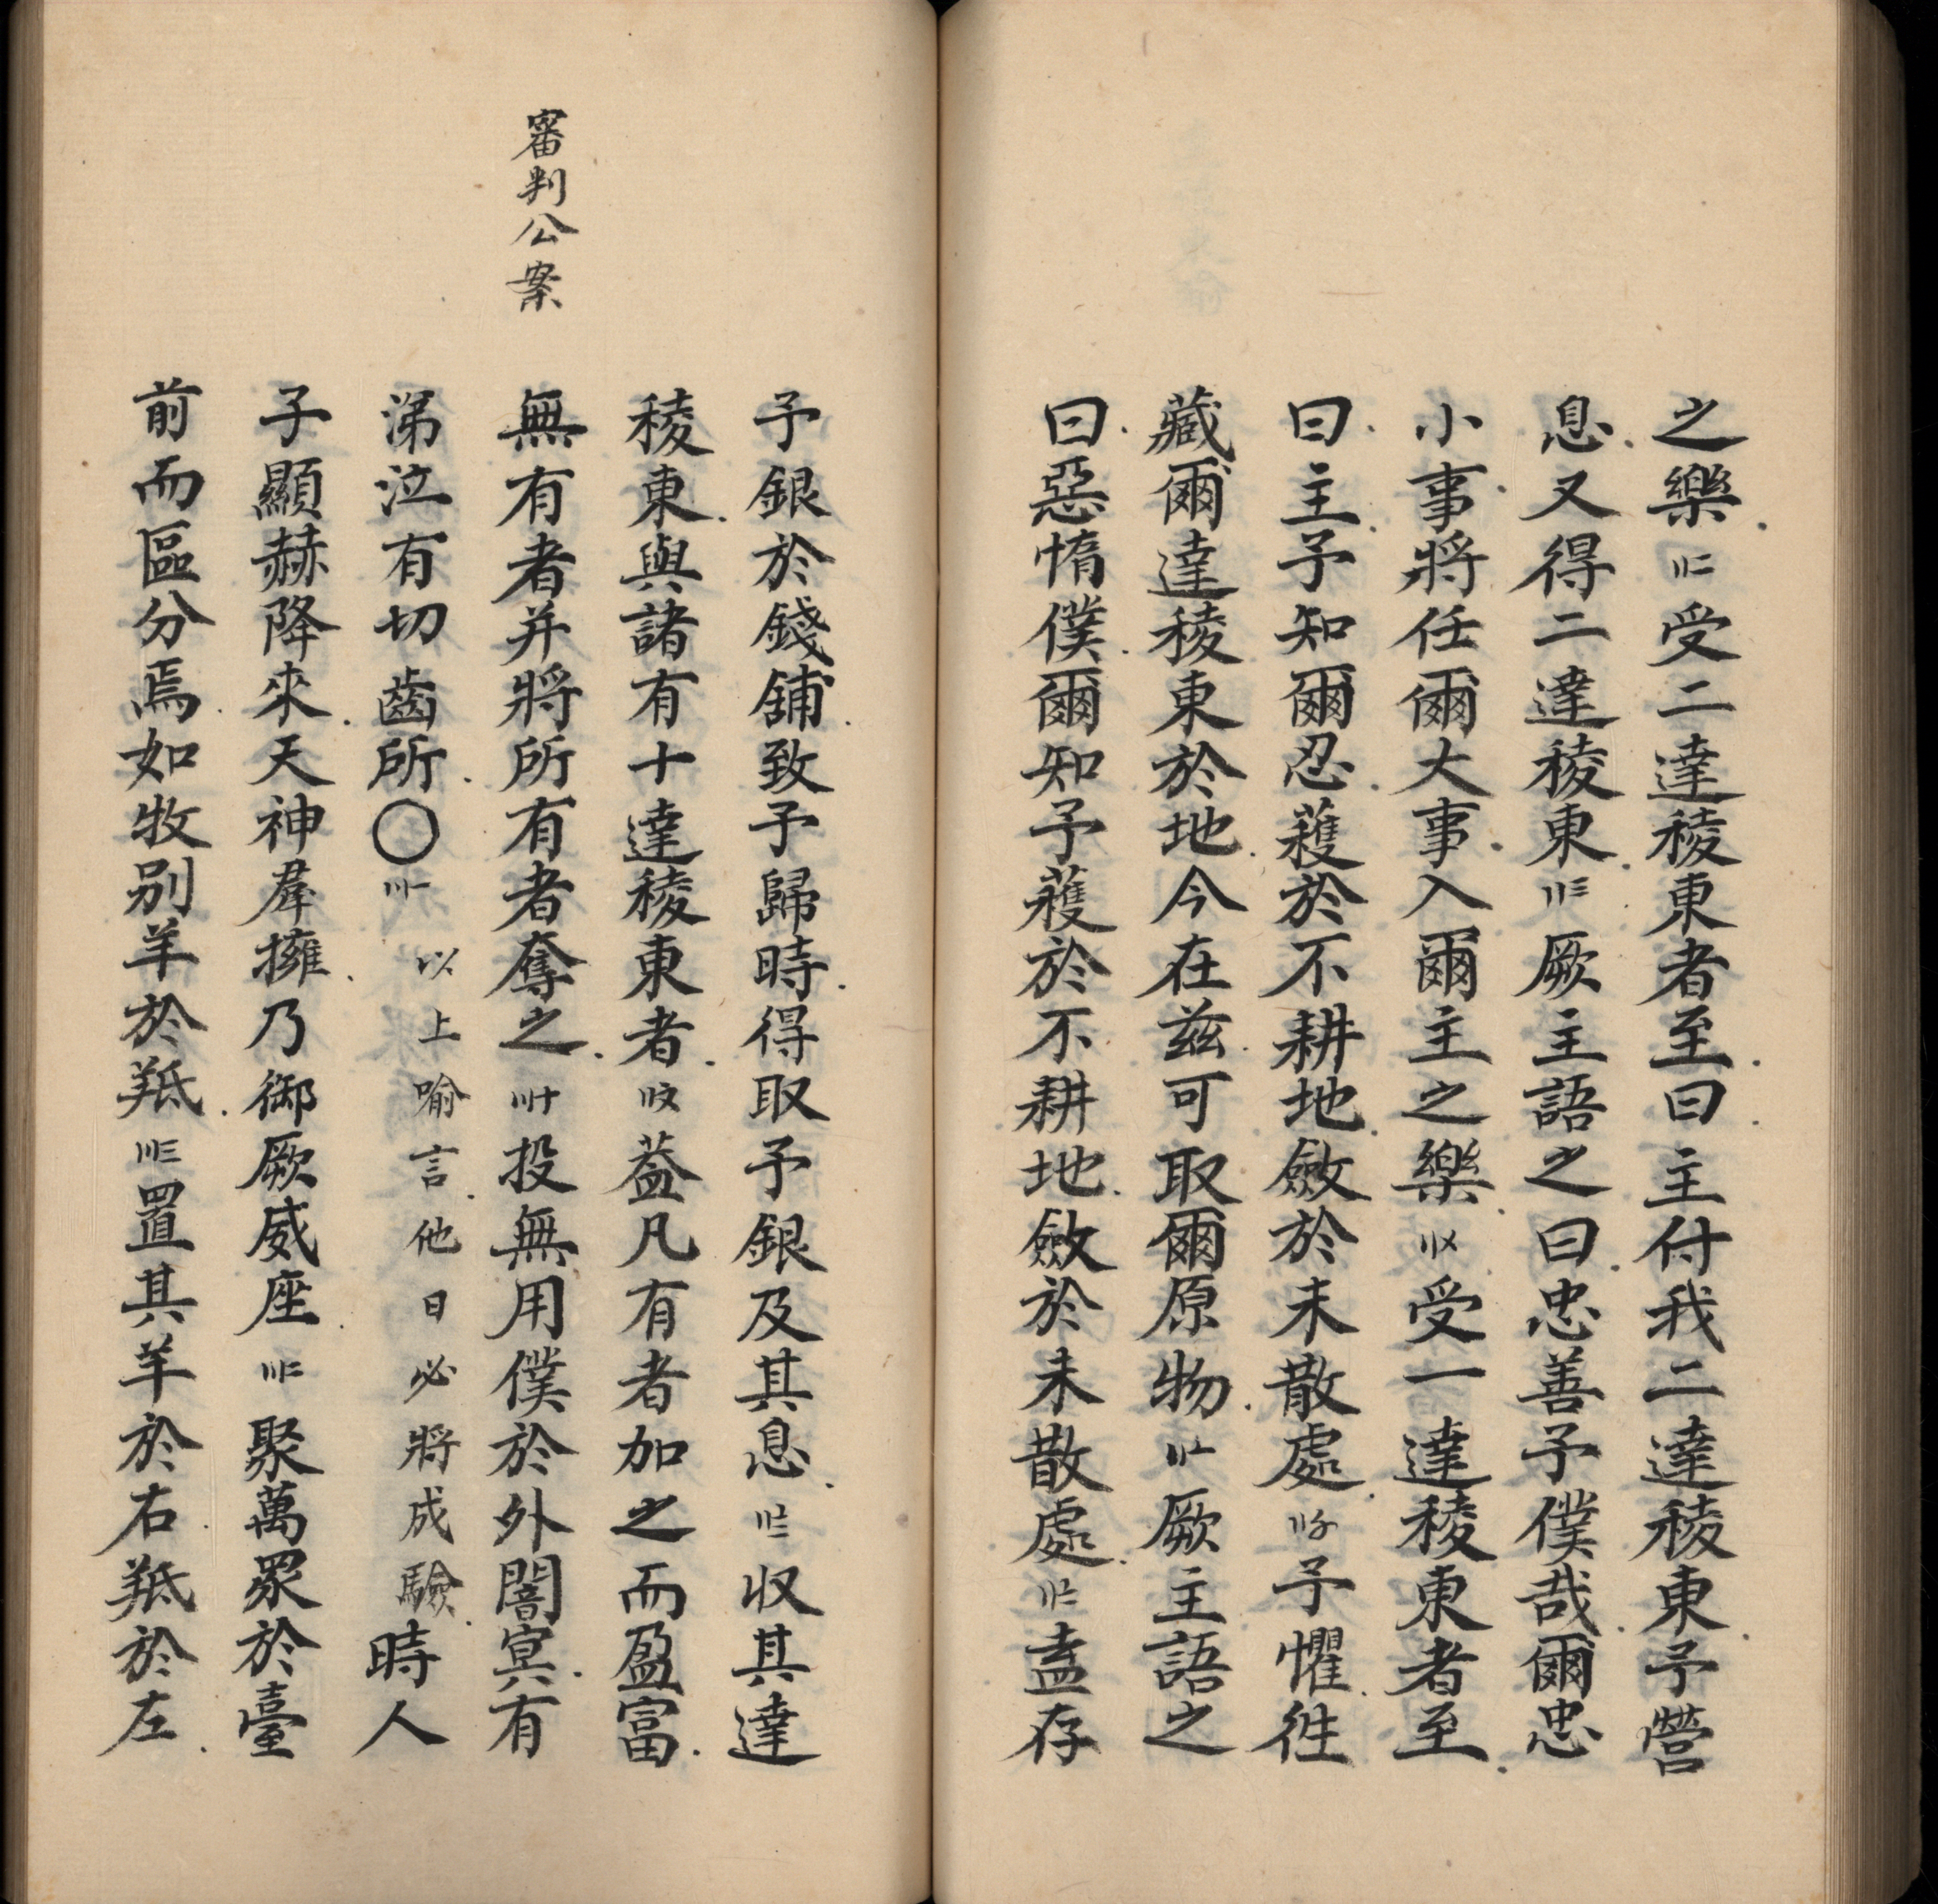 之樂〢二受二達稜東者至曰主付我二達稜東予營
息又得二達稜東〢三厥主語之曰忠善予僕哉爾忠
小事將任爾大事入爾主之樂〢〤受一達稜東者至
曰主予知爾忍穫於不耕地斂於未散處〢〥予懼徃
藏爾達稜東於地今在兹可取爾原物〢〦厥主語之
曰惡惰僕爾知予穫於不耕地斂於未散處〢〧盍存
予銀於錢舖致予歸時得取予銀及其息〢〨収其達
稜東與諸有十達稜東者〢〩葢凡有者加之而盈富
審判公案
無有者并將所有者奪之〣十投無用僕於外闇冥有
涕泣有切齒所〇〣一以上喻言他日必將成驗時人
子顯赫降來天神羣擁乃御厥威座〣二聚萬眾於臺
前而區分焉如牧别羊於羝〣三置其羊於右羝於左